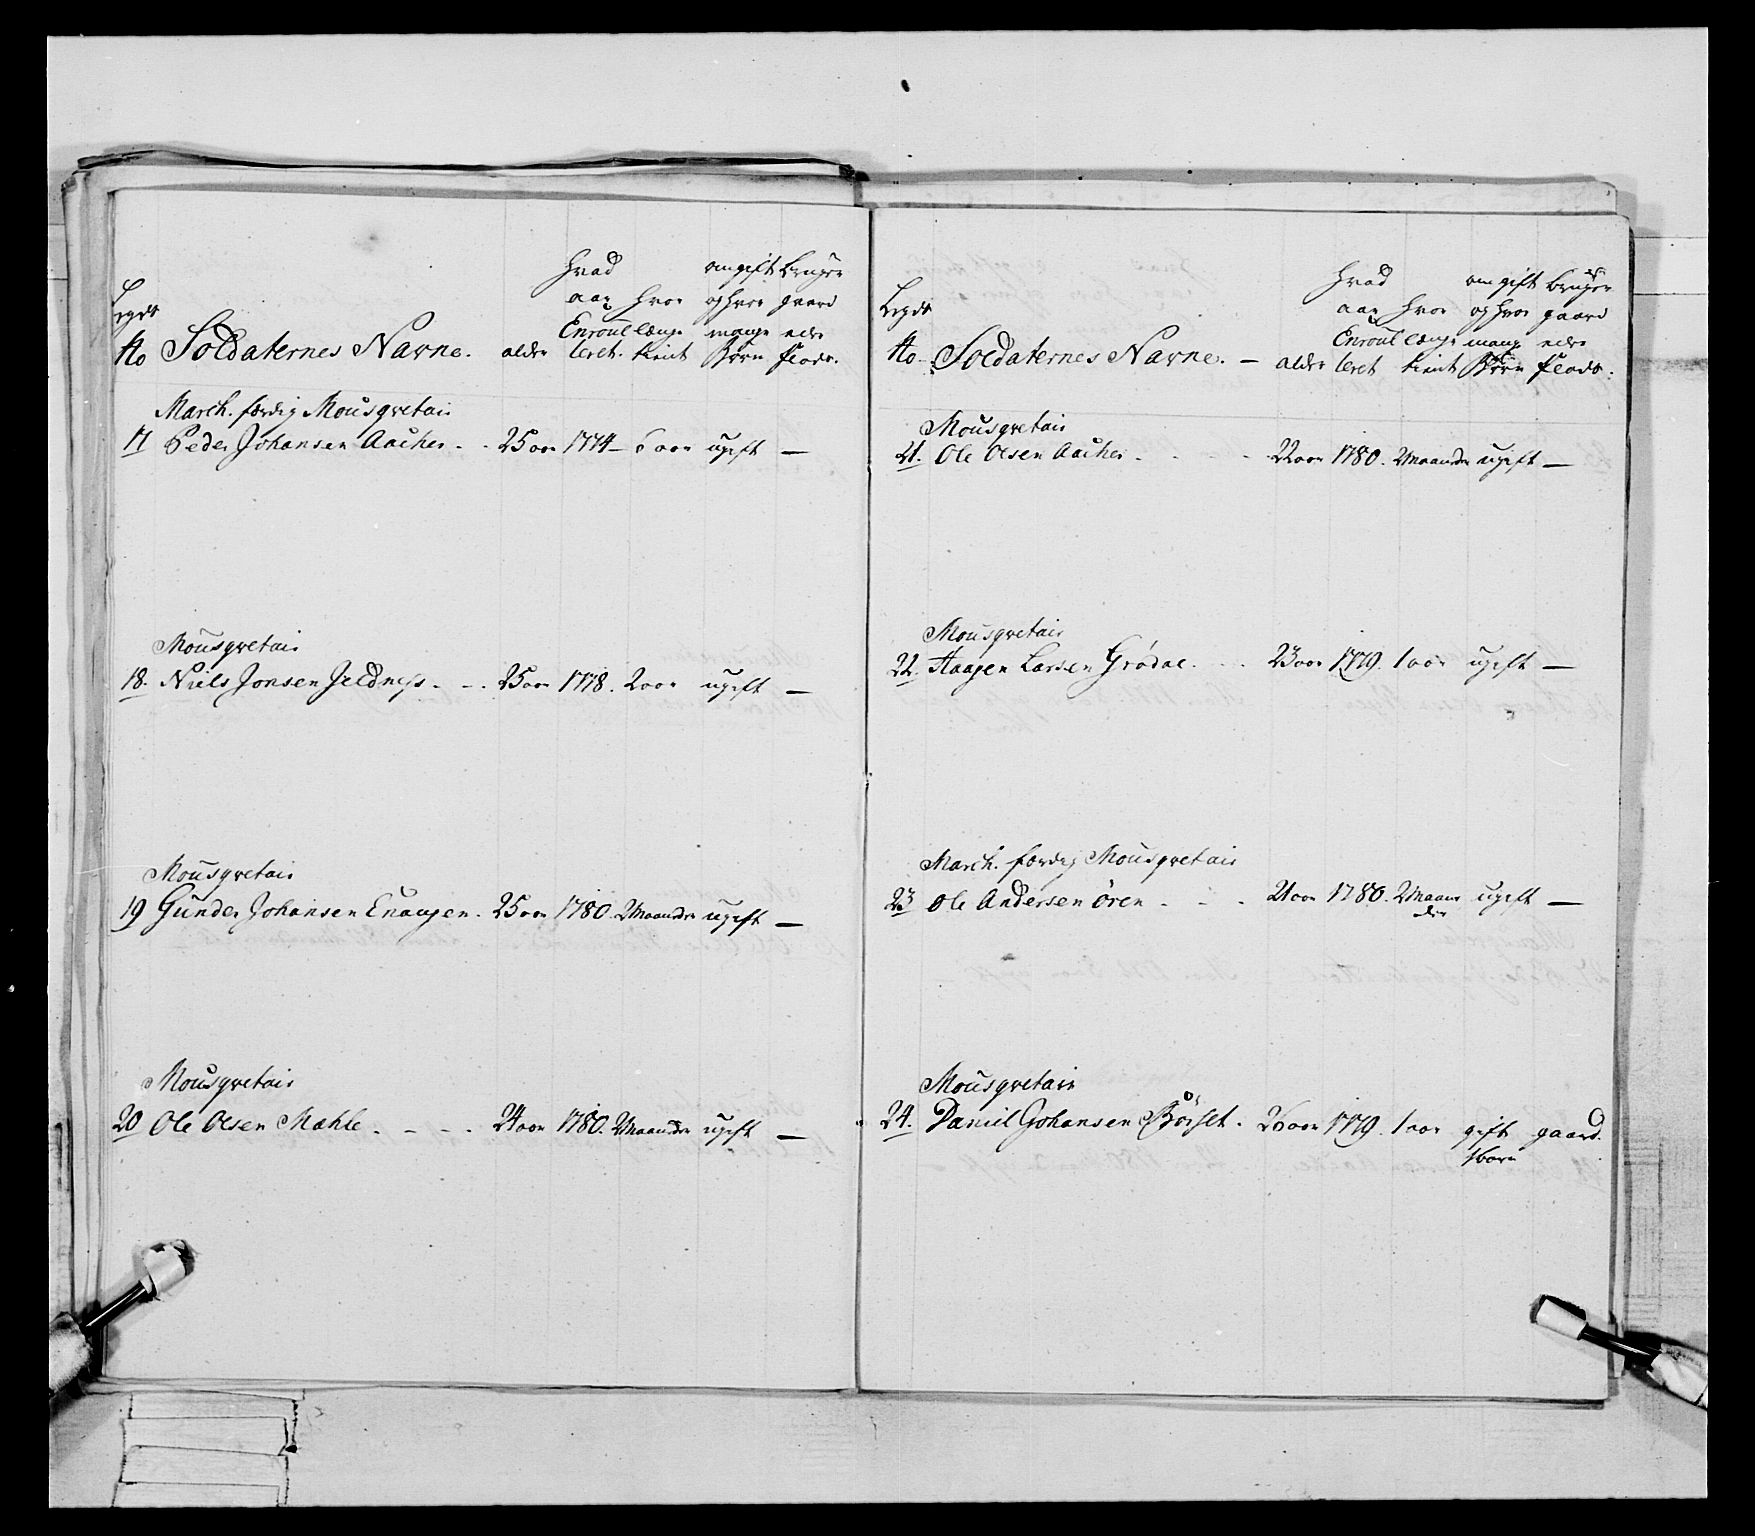 Legds
No Soldaternes Navne. alder
hvad aar Enroulleret. hvor længe tient om gift og hvor mange Børn bruger gaard eller Plads.
March. færdig Mousqvetair
17 Peder Johansen Aacher - - 25 aar 1774 - 6 aar ugift —
Mousqvetair
18. Niels Jonsen Jeldness. - - 25 aar 1778. 2 aar ugift —
Mousqvetair
19 Gunder Johansen Enangen. 25 aar 1780. 2 Maander ugift —
Mousqvetair
20 Ole Olsen Mahle. - - - 24 aar 1780. 2 Maander ugift —
Legds
No. Soldaternes Navne. — alder
hvad aar Enroulleret hvor længe tient om gift og hvor mange Børn bruger gaard eller Plads.
Mousqvetair
21. Ole Olsen Aacher. - - - - 22 aar 1780. 2 Maander ugift —
Mousqvetair
22. Haagen Larsen Grödal. - - 23 aar 1779. 1 aar ugift —
March. færdig Mousqvetair
23 Ole Andersen Ören - - - 21 aar 1780. 2 Maander ugift —
Mousqvetair
24. Daniel Johansen Börset. 26 aar 1779. 1 aar gift gaard.
1 barn